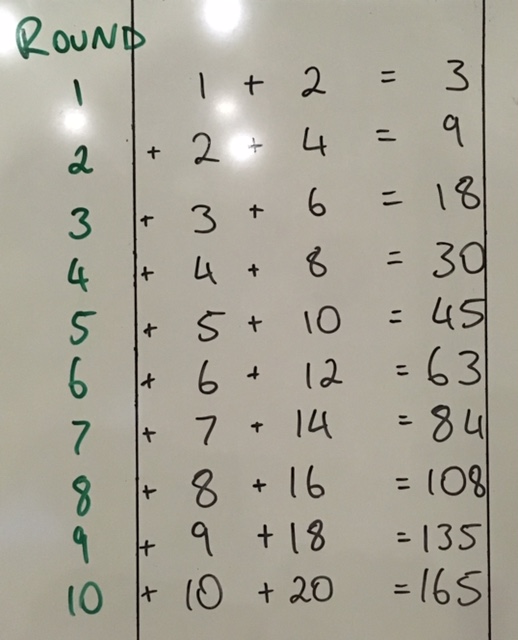 ROUND
1 1 + 2 = 3
2 + 2 + 4 = 9
3 + 3 + 6 = 18
4 + 4 + 8 = 30
5 + 5 + 10 = 45
6 + 6 + 12 = 63
7 + 7 + 14 = 84
8 + 8 + 16 = 108
9 + 9 + 18 = 135
10 + 10 + 20 = 165